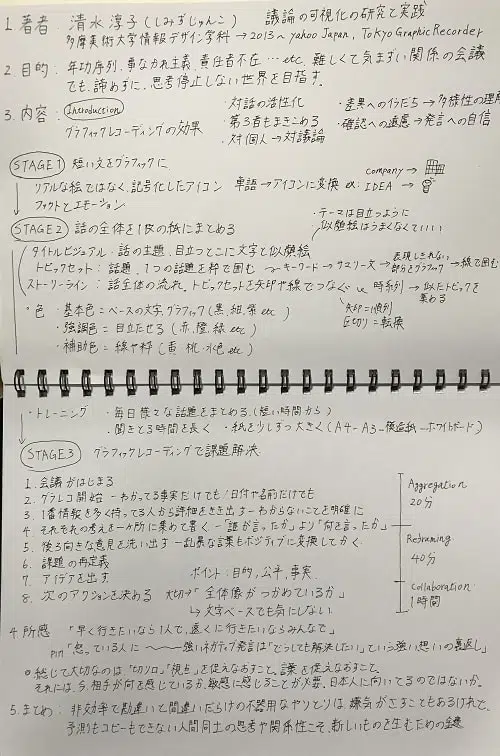 1. 著者: 清水淳子(しみずじゅんこ) 議論の可視化の研究と実践
多摩美術大学情報デザイン学科→2013〜yahoo Japan, Tokyo Graphic Recorder
2. 目的: 年功序列、事なかれ主義、責任者不在…etc. 難しくて気まずい関係の会議
でも、諦めずに、思考停止しない世界を目指す。
3. 内容: Introduction ・対話の活性化 ・差異へのイラだち→多様性の理解
グラフィックレコーディングの効果 ・第3者もまきこめる ・確認への遠慮→発言への自信
・対個人→対議論
STAGE1 短い文をグラフィックに
リアルな絵ではなく、記号化したアイコン 単語→アイコンに変換 ex: company→
ファクトとエモーション IDEA→
STAGE2 話の全体を1枚の紙にまとめる
・テーマは目立つように
似顔絵はうまくなくていい
タイトルビジュアル・話の主題、目立つとこに文字と似顔絵
トピックセット: 話題、1つの話題を枠で囲む 〜キーワード→サマリー文→表現しきれない部分をグラフィック→線で囲む
ストーリーライン: 話全体の流れ、トピックセットを矢印や線でつなぐ 時系列→似たトピックを集める
矢印=順列
区切り=転換
◦色・基本色=ベースの文字、グラフィック(黒、紺、茶 etc)
・強調色=目立たせる(赤、橙、緑 etc)
・補助色=線や枠(黄、桃、水色 etc)
・トレーニング ・毎日様々な話題をまとめる。(短い時間から)
・聞きとる時間を長く ・紙を少しずつ大きく(A4-A3-模造紙-ホワイトボード)
STAGE3 グラフィックレコーディングで課題解決
1. 会議がはじまる
2. グラレコ開始 - わかってる事実だけでも/日付や名前だけでも
3. 1番情報を多く持ってる人から詳細をきき出す-わからないことを明確に
4. それぞれの考えを一ヶ所に集めて書く -「誰が言ったか」より「何を言ったか」
5. 後ろ向きな意見を洗い出す -乱暴な言葉もポジティブに変換してかく
6. 課題の再定義
7. アイデアを出す ポイント: 目的、公平、事実
8. 次のアクションを決める 大切→「全体像がつかめているか」
↳文字ベースでも気にしない
Aggregation
20分
Reframing
40分
Collaboration
1時間
4. 所感 「早く行きたいなら1人で、遠くに行きたいならみんなで」
「怒っている人に 〜強いネガティブ発言は「どうしても解決したい」という強い想いの裏返し」
◎総じて大切なのは、「切り口」「視点」を使えなおすこと。言葉を使えなおすこと。
それには、今、相手が何を感じているか、敏感に感じることが必要。日本人に向いてるのではないか。
5. まとめ: 非効率で勘違いと間違いだらけの不器用なやりとりは、嫌気がさすこともあるけれど、
予測もコピーもできない人間同士の思考や関係性こそ、新しいものを生むための鍵